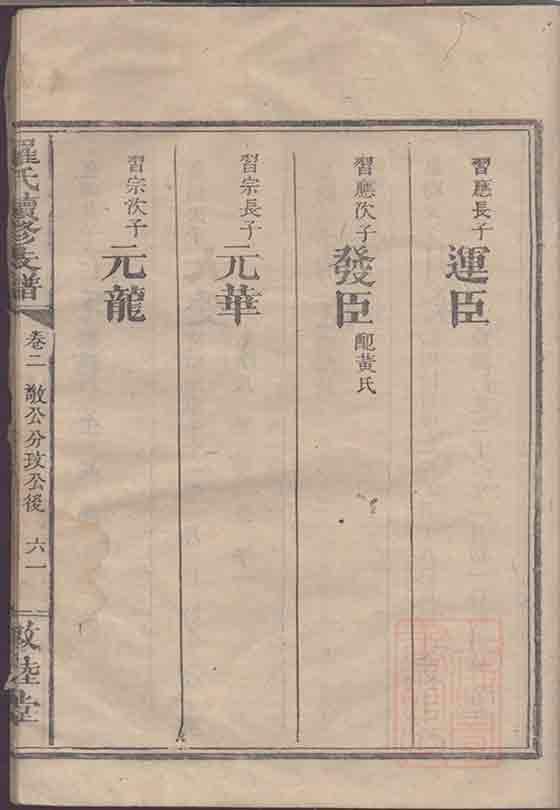 習應長子 運臣
習應次子 發臣 配黃氏
習宗長子 元華
習宗次子 元龍
羅氏續修支譜
卷二 敞公分玟公後 六一
敦陸堂